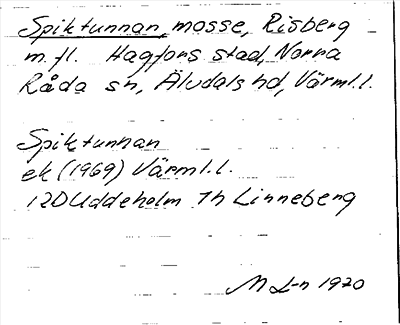 Spiktunnan, mosse, Risberg
m. fl. Hagfors stad, Norra
Råda sn, Älvdals hd, Värml.l.
Spiktunnan
ek (1969) Värml.l.
12D Uddeholm 1h Linneberg
M L-n 1970